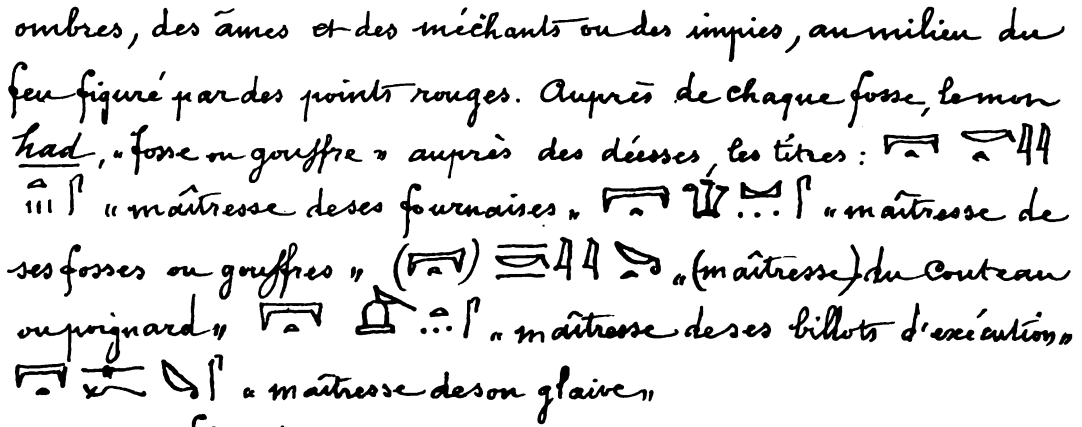 ombres, des âmes et des méchants ou des impies, au milieu du
feu figuré par des points rouges. Auprès de chaque fosse, le mon
had, "fosse ou gouffre" auprès des déesses, les titres :
"maîtresse de ses fournaises" "maîtresse de
ses fosses ou gouffres" ( ) "(maîtresse) du couteau
ou poignard" "maîtresse de ses billots d'exécution"
"maîtresse de son glaive"